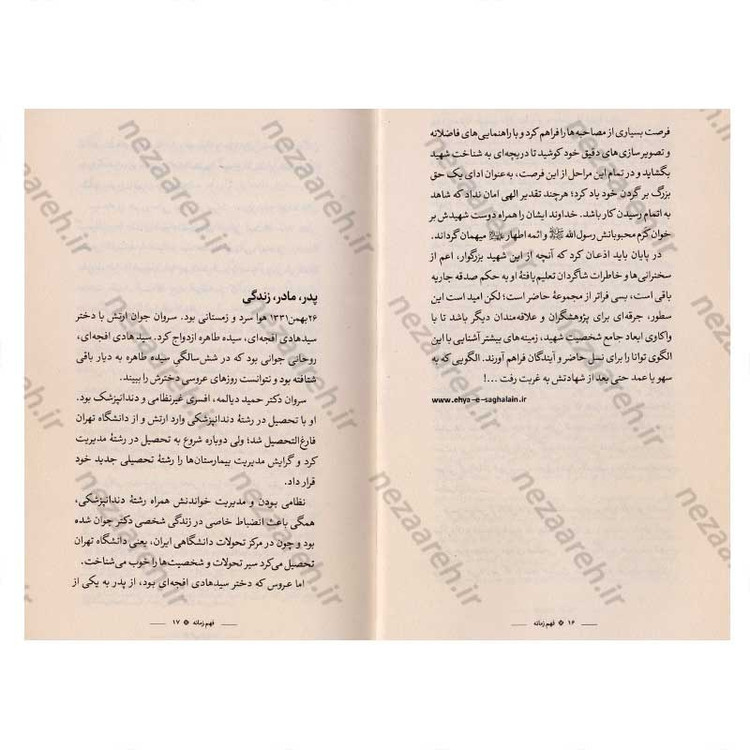 فرصت بسیاری از مصاحبه‌ها را فراهم کرد و با راهنمایی‌های فاضلانه
و تصویرسازی‌های دقیق خود کوشید تا دریچه‌ای به شناخت شهید
بگشاید و در تمام این مراحل از این فرصت، به‌عنوان ادای یک حق
بزرگ بر گردن خود یاد کرد؛ هرچند تقدیر الهی امان نداد که شاهد
به اتمام رسیدن کار باشد. خداوند ایشان را همراه دوست شهیدش بر
خوان کرم محبوبانش رسول‌الله ﷺ و ائمه اطهار میهمان گرداند.
در پایان باید اذعان کرد که آنچه از این شهید بزرگوار، اعم از
سخنرانی‌ها و خاطرات شاگردان تعلیم‌یافتۀ او به حکم صدقه جاریه
باقی است، بسی فراتر از مجموعۀ حاضر است؛ لکن امید است این
سطور، جرقه‌ای برای پژوهشگران و علاقه‌مندان دیگر باشد تا با
واکاوی ابعاد جامع شخصیت شهید، زمینه‌های بیشتر آشنایی با این
الگوی توانا را برای نسل حاضر و آیندگان فراهم آورند. الگویی که به
سهو یا عمد حتی بعد از شهادتش به غربت رفت ...!
www.ehya-e-saghalain.ir
۱۶ فهم زمانه
پدر، مادر، زندگی
۲۶بهمن۱۳۳۱ هوا سرد و زمستانی بود. سروان جوان ارتش با دختر
سیدهادی افجه‌ای، سیده طاهره ازدواج کرد. سیدهادی افجه‌ای،
روحانی جوانی بود که در شش‌سالگیِ سیده طاهره به دیار باقی
شتافته بود و نتوانست روزهای عروسی دخترش را ببیند.
سروان دکتر حمید دیالمه، افسری غیرنظامی و دندانپزشک بود.
او با تحصیل در رشتۀ دندانپزشکی وارد ارتش و از دانشگاه تهران
فارغ‌التحصیل شد؛ ولی دوباره شروع به تحصیل در رشتۀ مدیریت
کرد و گرایش مدیریت بیمارستان‌ها را رشتۀ تحصیلی جدید خود
قرار داد.
نظامی بودن و مدیریت خواندنش همراه رشتۀ دندانپزشکی،
همگی باعث انضباط خاصی در زندگی شخصی دکتر جوان شده
بود و چون در مرکز تحولات دانشگاهی ایران، یعنی دانشگاه تهران
تحصیل می‌کرد سیر تحولات و شخصیت‌ها را خوب می‌شناخت.
اما عروس که دختر سیدهادی افجه‌ای بود، از پدر به یکی از
فهم زمانه ۱۷
nezaareh.ir
nezaareh.ir
nezaareh.ir
nezaareh.ir
nezaareh.ir
nezaareh.ir
nezaareh.ir
nezaareh.ir
nezaareh.ir